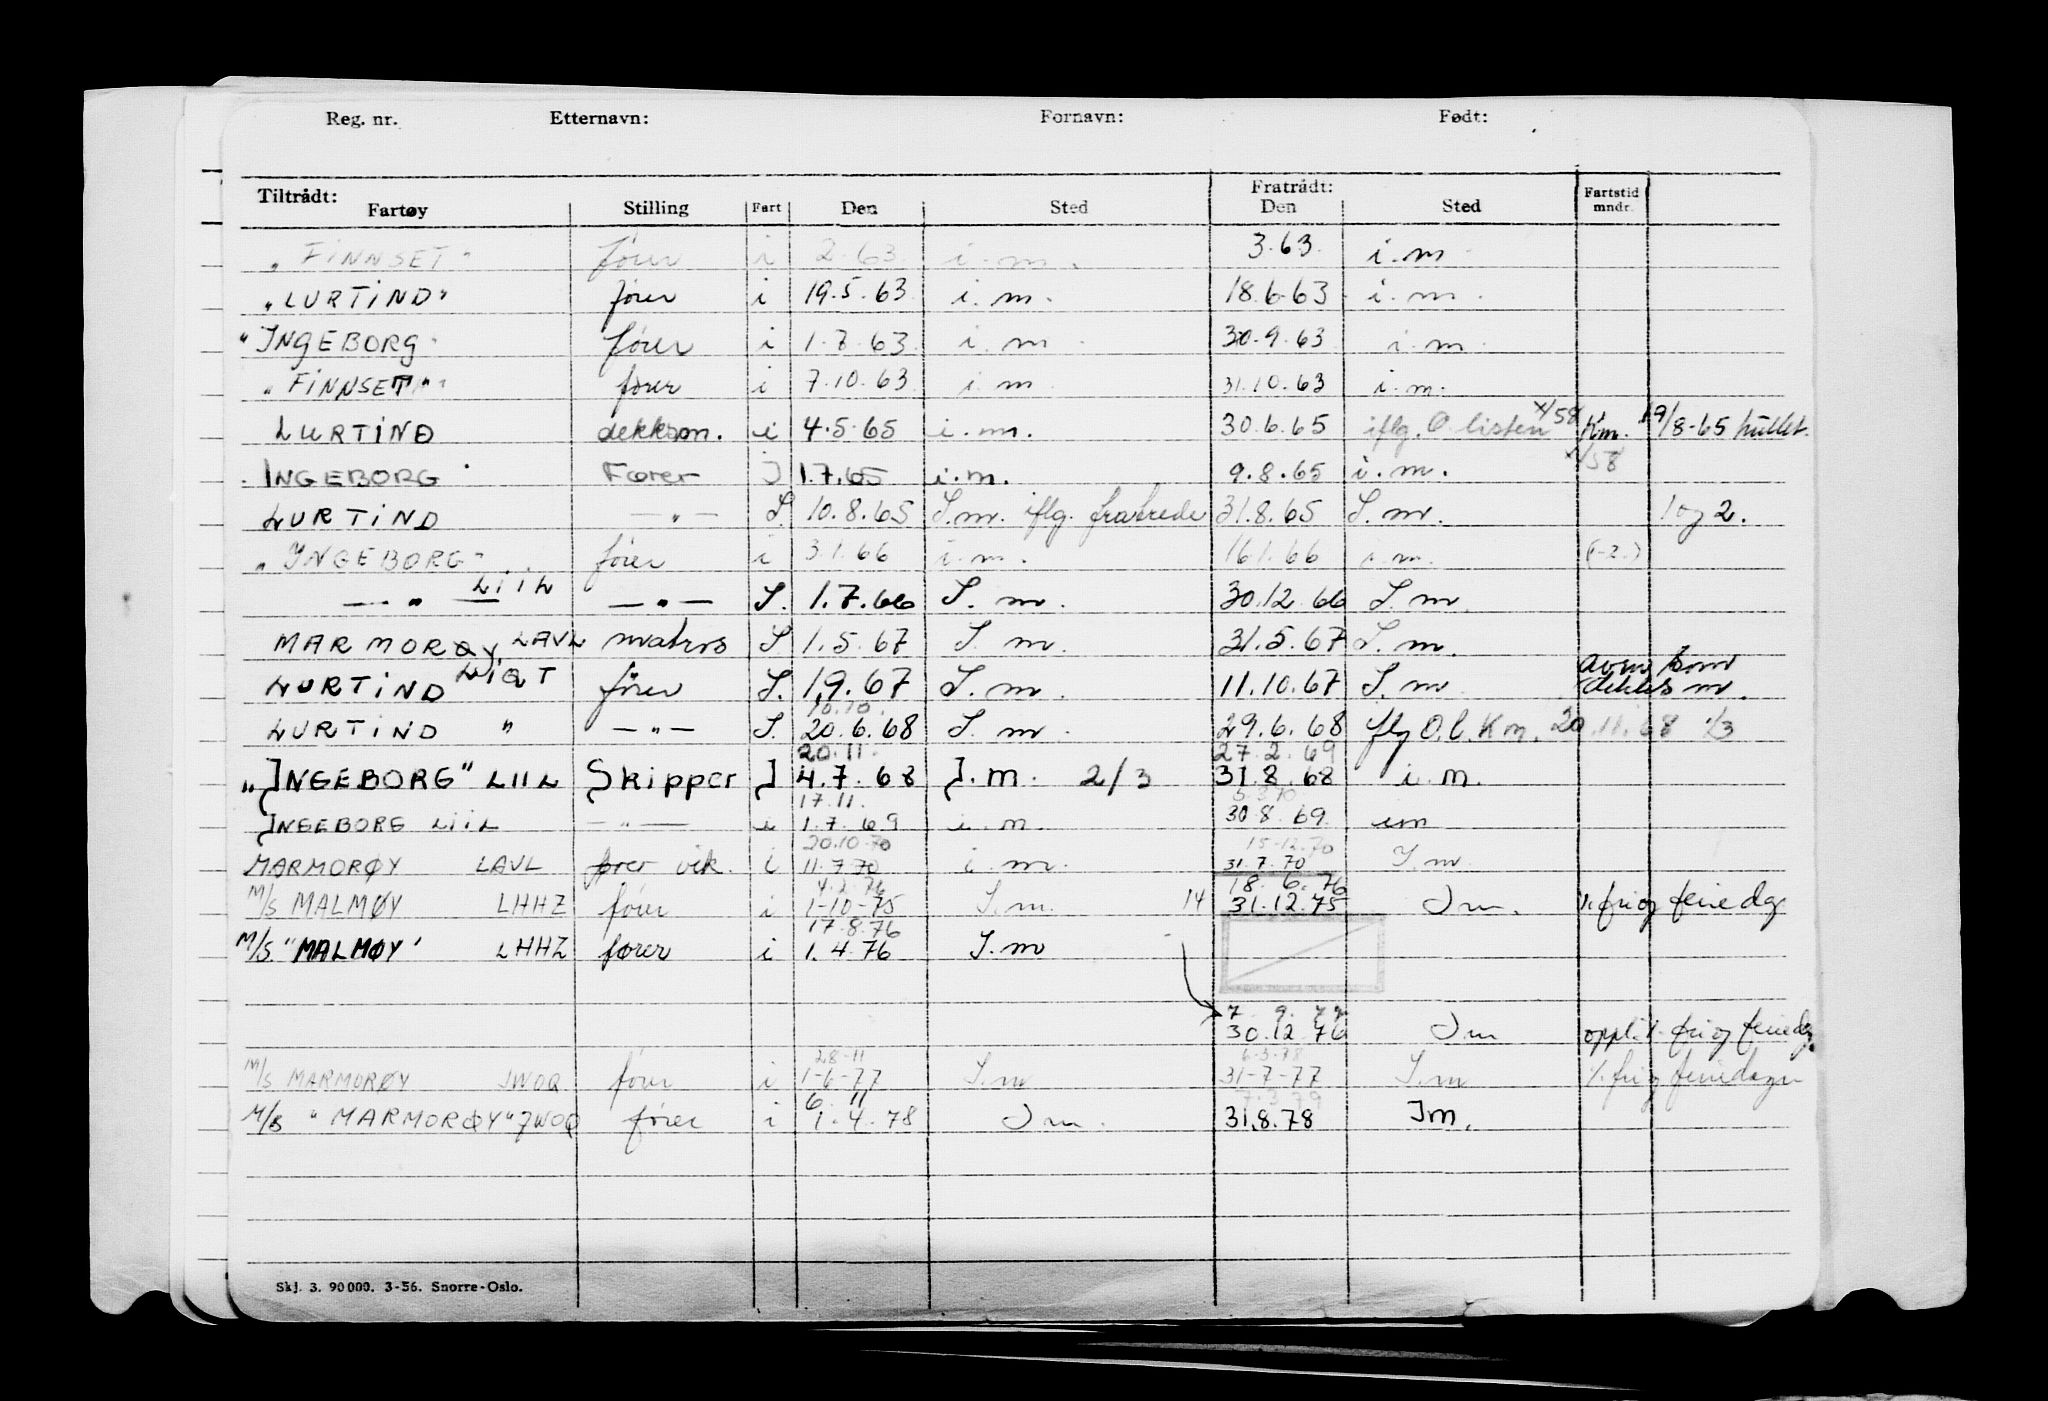 Reg. nr. Etternavn: Fornavn: Født:
Tiltrådt: Fratrådt: Fartstid mndr.
Fartøy Stilling Fart Den Sted Den Sted
"FINNSET" fører i 2.63 i.m. 3.63 i.m
"LURTIND" fører i 19.5.63 i.m. 18.6.63 i.m.
"INGEBORG" fører i 1.7.63 i.m. 30.9.63 i.m.
"FINNSET" fører i 7.10.63 i.m 31.10.63 i.m.
LURTIND dekksm. i 4.5.65 i.m. 30.6.65 iflg. O listen x/58 Km. 19/8-65 hullet.
INGEBORG Fører I 1.7.65 i.m. 9.8.65 i.m. x/58
LURTIND —"— I. 10.8.65 I.m. iflg. fratrede 31.8.65 I.m. 1 og 2.
"INGEBORG" fører i 3.1.66 i.m. 16.1.66 i.m. (-2.)
—"— LIIL —"— I. 1.7.66 I.m. 30.12.66 I.m.
MARMORØY LAVL matros I 1.5.67 I.m. 31.5.67 I.m.
LURTIND LIQT fører I. 1.9.67 I.m. 11.10.67 I.m dekksm.
10.10.
LURTIND " —"— I. 20.6.68 I.m. 29.6.68 iflg O.l. Km. 20.11.68 1/3
20.11. 27.2.69
"INGEBORG" LIIL Skipper I 4.7.68 I.m. 2/3 31.8.68 i.m.
17.11.
INGEBORG LIIL —"— i 1.7.69 i.m. 30.8.69 im
20.10.70 15-12.70
MARMORØY LAVL fører vik. i 11.7.70 i.m. 31.7.70 I.m
4.2.76 18.6.76
M/S MALMØY LHHZ fører i 1-10-75 I.m. 14 31.12.75 Im. %. fri og feriedag
17.8.76
M/S. "MALMØY" LHHZ fører i 1.4.76 I.m
7.9.77
30.12.76 Im oppl. %. fri og feriedg.
28-11 6-3.78
M/S MARMORØY JWOQ fører i 1-6-77 I.m 31-7-77 I.m %. fri og feriedager
6.11 7.3.79
M/S "MARMORØY" JWOQ fører i 1.4.78 Im. 31.8.78 Im.
Skj. 3. 90 000. 3-56. Snorre-Oslo.